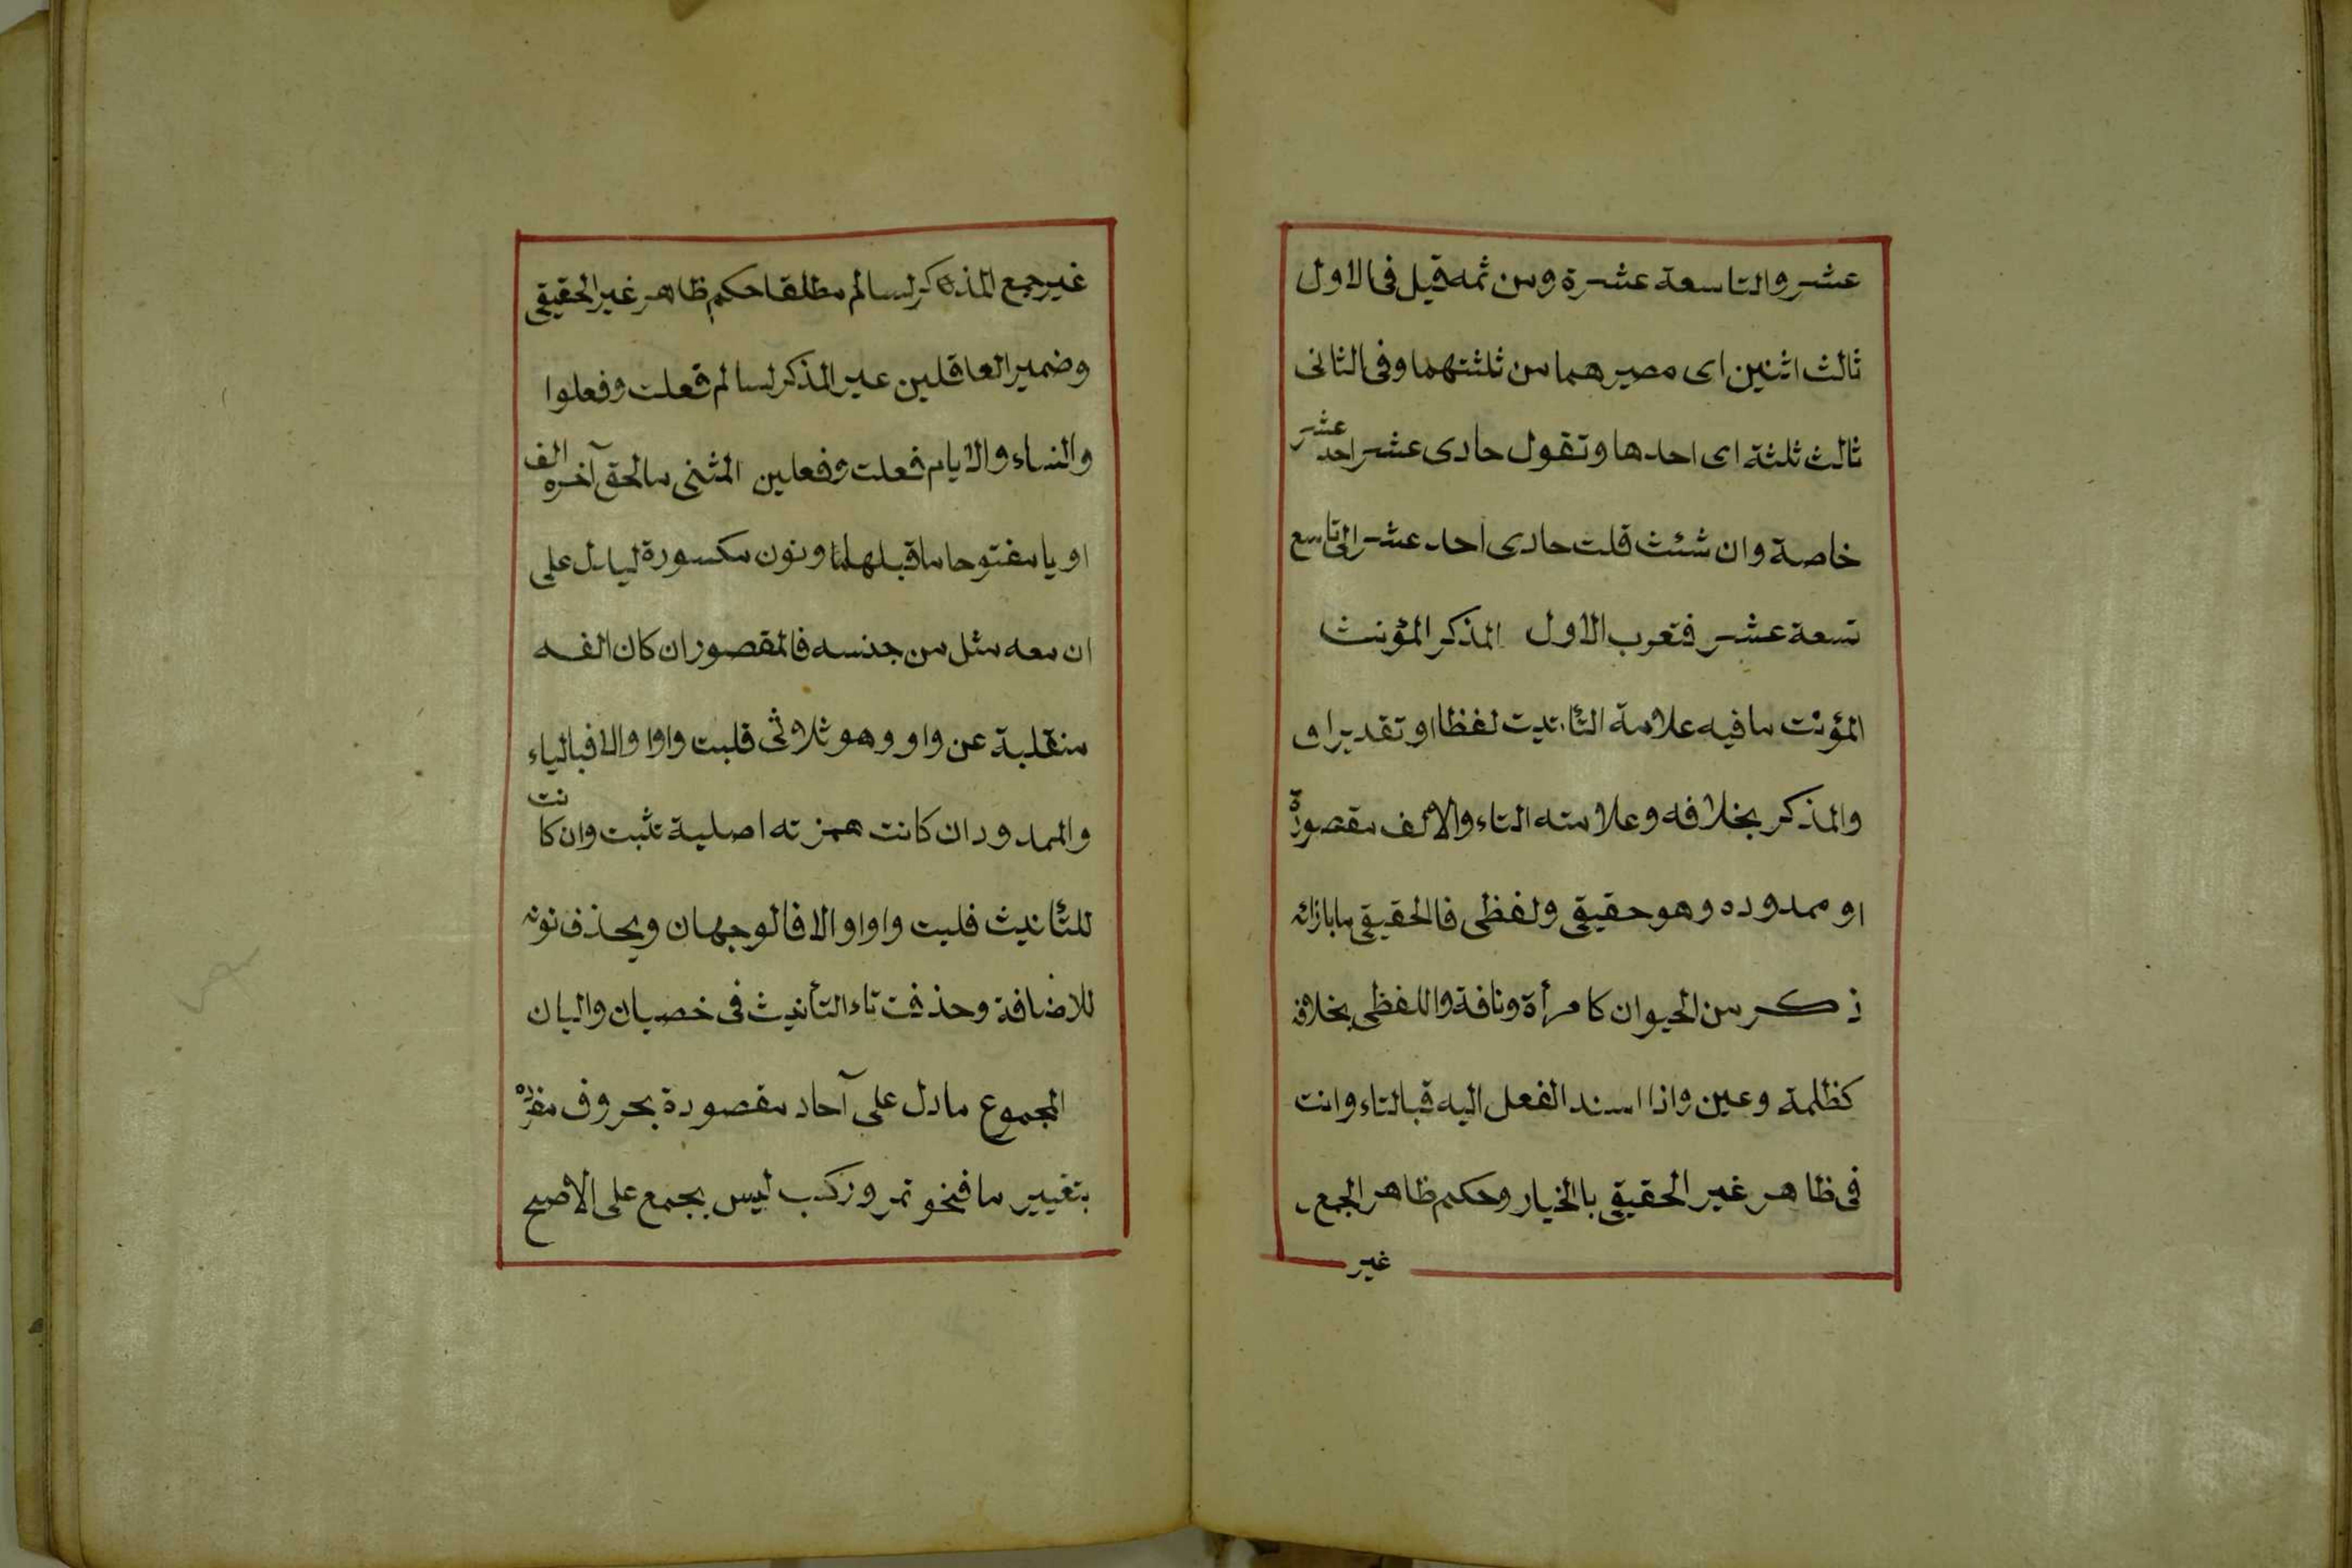 عشر والتاسعة عشرة ومن ثمه قيل فى الاول
ثالث اثنين اى مصيرهما من ثلثتهما وفى الثانى
ثالث ثلثة اى احدها وتقول حادى عشر احد عشر
خاصة وان شئت قلت حادى احد عشر الى تاسع
تسعة عشر فتعرب الاول المذكر المؤنث
المؤنث ما فيه علامة التأنيث لفظا او تقديرا و
والمذكر بخلافه وعلامته التاء والالف مقصورة
او ممدوده وهو حقيقى ولفظى فالحقيقى ما بازائه
ذكر من الحيوان كامرأة ونافة واللفظى بخلافه
كظلمة وعين واذا اسند الفعل اليه قبالتاء وانت
فى ظاهر غير الحقيقى بالخيار وحكم ظاهر الجمع
غير
غير جمع المذكر لسالم مطلقا حكم ظاهر غير الحقيقى
وضمير العاقلين غير المذكر لسالم فعلت وفعلوا
والنساء والايام فعلت وفعلين المثنى ما لحق آخره الف
او يا مفتوحا ما قبلهما ونون مكسورة ليدل على
ان معه مثل من جنسه فالمقصور ان كان الفه
منقلبة عن واو وهو ثلاثى قلبت واوا والا فبالياء
والممدود ان كانت همزته اصلية تثبت وان كانت
للتأنيث قلبت واوا والا فالوجهان ويحذف نونه
للاضافة وحذفت تاء التأنيث فى خصيان واليان
المجموع ما دل على آحاد مقصودة بحروف مفرده
بتغيير ما فنحو تمر وركب ليس بجمع على الاصح